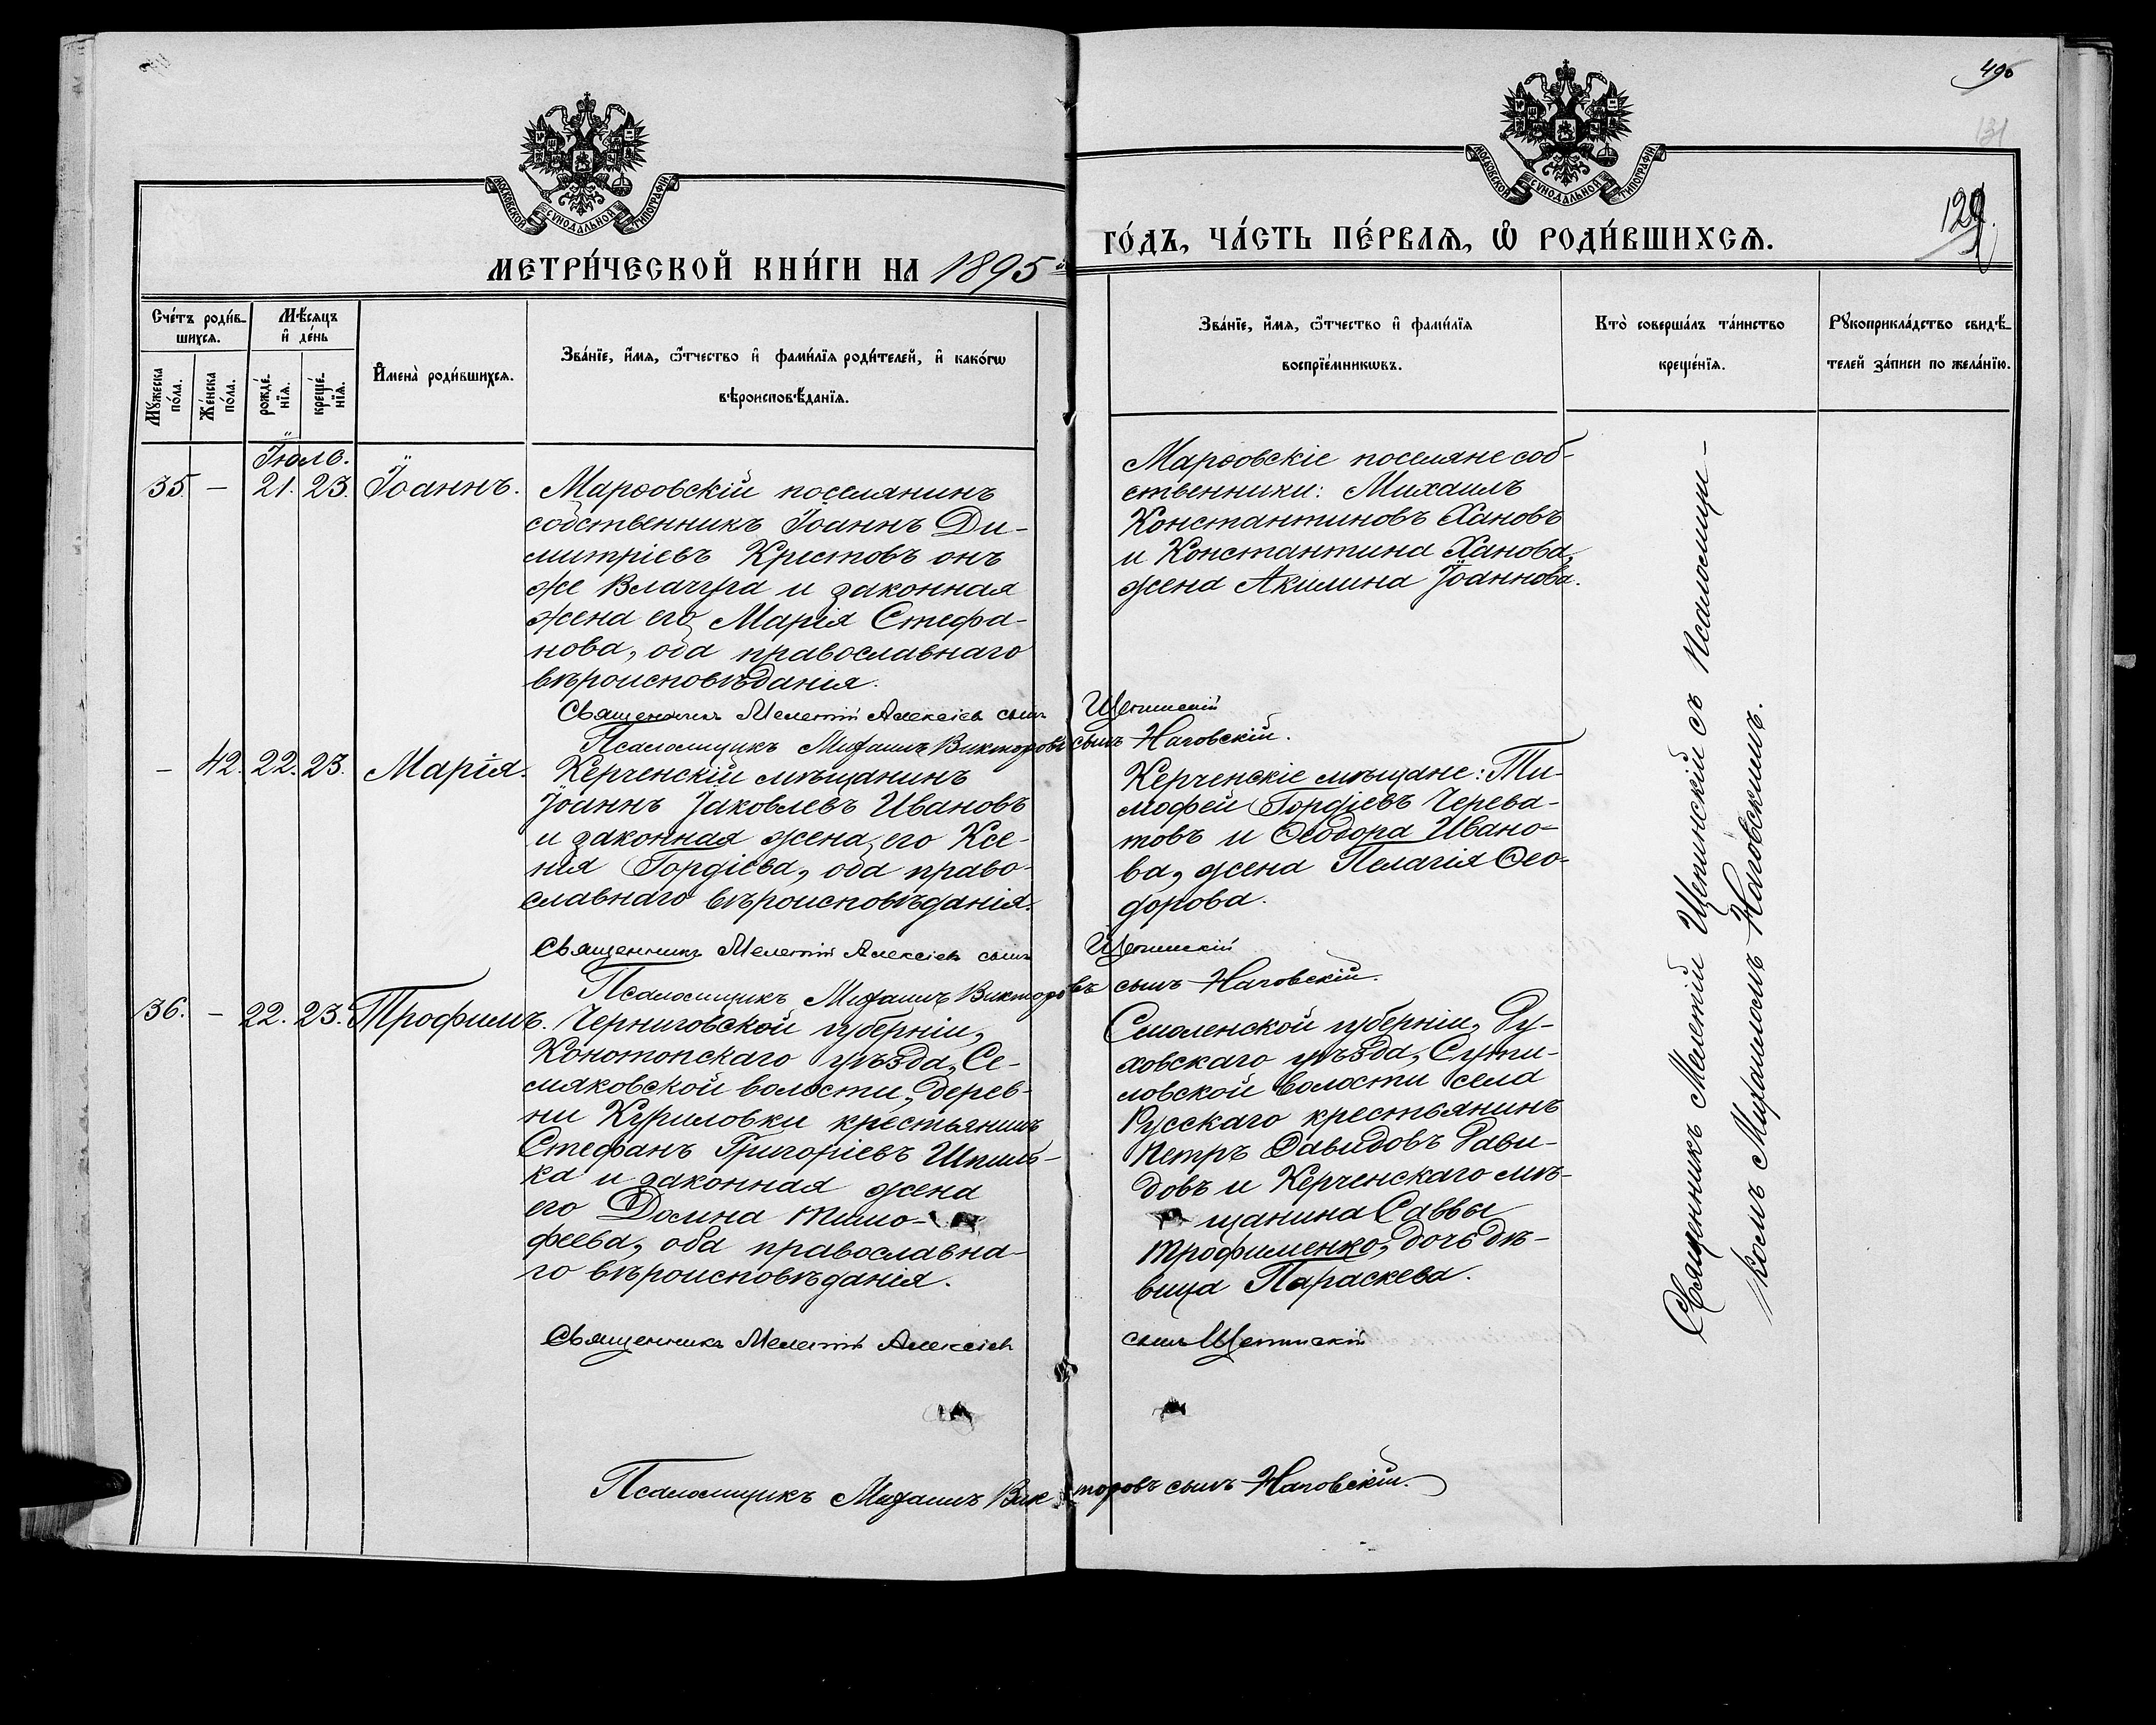 496
131
129.
МОСКОВСКОЙ СѴНОДАЛЬНОЙ ТИПОГРАФІИ
МЕТРИ́ЧЕСКОЙ КНИ́ГИ НА 1895й
МОСКОВСКОЙ СѴНОДАЛЬНОЙ ТИПОГРАФІИ
ГО́ДЪ, ЧА́СТЬ ПЕ́РВАѦ, Ѽ РОДИ́ВШИХСѦ.
Сче́тъ роди́в-
шихсѧ.
Мꙋжеска по́ла.
Же́нска по́ла.
Мѣ́сѧцъ
и҆ де́нь
рожде́-
нїѧ.
креще́-
нїѧ.
И҆мена̀ роди́вшихсѧ.
Зва́нїе, и҆́мѧ, ѻ҆́тчество и҆ фами́лїѧ роди́телей, и҆ како́гѡ
вѣроисповѣ́данїѧ.
Зва́нїе, и҆́мѧ, ѻ҆́тчество и҆ фами́лїѧ
воспрїе́мникѡвъ.
Кто̀ соверша́лъ та́инство
креще́нїѧ.
Рꙋкоприкла́дство свидѣ́-
телей за́писи по жела́нїю.
Іюль.
35. — 21. 23. Іоаннъ.
Марѳовскій поселянинъ
собственникъ Іоаннъ Ди-
митріевъ Крестовъ онъ
же Влачуга и законная
жена его Марія Стефа-
нова, оба православнаго
вѣроисповѣданія.
Марѳовскіе поселяне соб-
ственники: Михаилъ
Константиновъ Хановъ
и Константина Ханова,
жена Акилина Іоаннова.
Священникъ Мелетій Алексіевъ сынъ Щепинскій
Псаломщикъ Михаилъ Викторовъ сынъ Наговскій.
— 42. 22. 23. Марія.
Керченскій мѣщанинъ
Іоаннъ Іаковлевъ Ивановъ
и законная жена его Ксе-
нія Гордіева, оба право-
славнаго вѣроисповѣданія.
Керченскіе мѣщане: Ти-
мофей Гордіевъ Черева-
товъ и Ѳеодора Ивано-
ва, жена Пелагія Ѳео-
дорова.
Священникъ Мелетій Алексіевъ сынъ Щепинскій
Псаломщикъ Михаилъ Викторовъ сынъ Наговскій.
36. — 22. 23. Трофимъ.
Черниговской губерніи,
Конотопскаго уѣзда, Се-
мяковской волости, дерев-
ни Куриловки крестьянинъ
Стефанъ Григоріевъ Шпиль-
ка и законная жена
его Домна Тимо-
феева, оба православна-
го вѣроисповѣданія.
Смоленской губерніи, Ду-
ховскаго уѣзда,
ловской волости села
Русскаго крестьянинъ
Петръ Давидовъ Дави-
довъ и Керченскаго мѣ-
щанина Саввы
Трофименко, дочь дѣ-
вица Параскева.
Священникъ Мелетій Алексіевъ сынъ Щепинскій
Псаломщикъ Михаилъ Викторовъ сынъ Наговскій.
Священникъ Мелетій Щепинскій съ Псаломщи-
комъ Михаиломъ Наговскимъ.